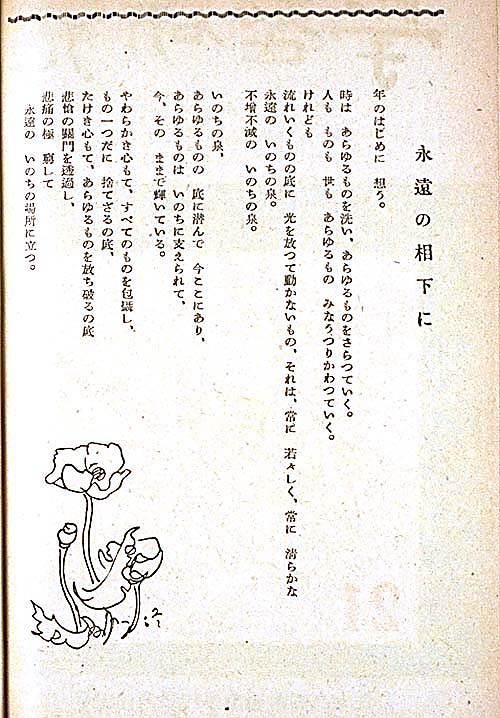 永遠の相下に
年のはじめに　想う。
時は　あらゆるものを洗い、あらゆるものをさらつていく。
人も　ものも　世も　あらゆるもの　みなうつりかわつていく。
けれども
流れいくものの底に　光を放つて動かないもの、それは、常に　若々しく、常に　清らかな
永遠の　いのちの泉。
不増不減の　いのちの泉。
いのちの泉、
あらゆるものの　底に潜んで　今ここにあり、
あらゆるものは　いのちに支えられて、
今、その　ままで輝いている。
やわらかき心もて、すべてのものを包攝し、
もの一つだに　捨てざるの底、
たけき心もて、あらゆるものを放ち破るの底
悲愴の關門を透過し、
悲痛の極　窮して
永遠の　いのちの場所に立つ。